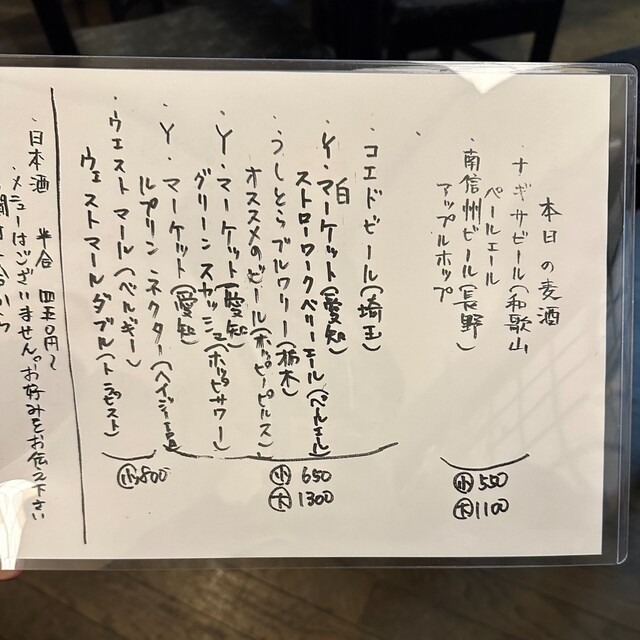 本日の麦酒
・ナギサビール(和歌山
ペールエール
・南信州ビール(長野)
アップルホップ
小 550
大 1100
・コエドビール(埼玉)
白
・Y・マーケット(愛知)
ストローワークベリーエール(ペールエール)
・うしとらブルワリー(栃木)
オススメのビール(ホッピーピルス)
・Y・マーケット(愛知)
グリーン スカッシュ(ホッピーサワー)
・Y・マーケット(愛知)
ルプリン ネクター(ヘイジー
小 650
大 1300
・ウエスト マール(ベルギー)
ウェストマールダブル(トラピスト)
小 800
・日本酒 半合 四五0円〜
メニューはございません。お好みをお伝え下さい